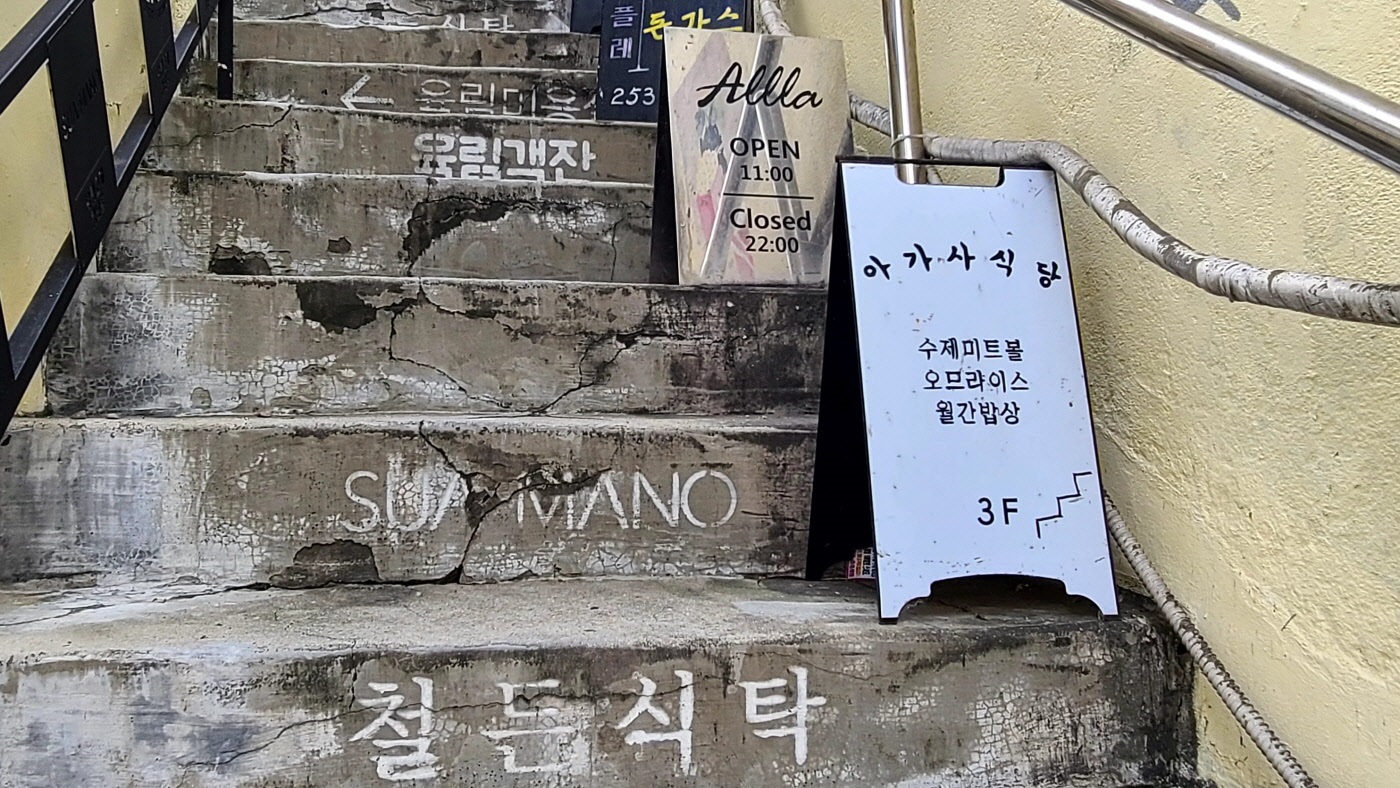 돈가스
플레
253
육림객잔
Allla
OPEN
11:00
Closed
22:00
아가사식당
수제미트볼
오므라이스
월간밥상
3F
SUA MANO
철든식탁